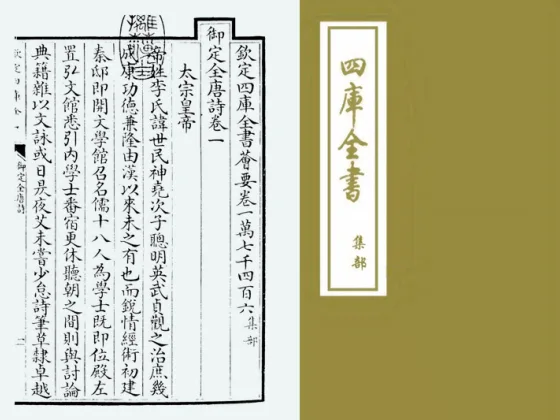 四庫全書
集部
欽定四庫全書薈要卷一萬七千四百六 集部
御定全唐詩卷一
太宗皇帝
帝姓李氏諱世民神堯次子聰明英武貞觀之治庶幾
成康功德兼隆由漢以來未之有也而銳情經術初建
秦邸即開文學館召名儒十八人為學士既即位殿左
置弘文館悉引內學士番宿更休聽朝之間則與討論
典籍雜以文詠或日昃夜艾未嘗少怠詩筆草隸卓越
御定全唐詩